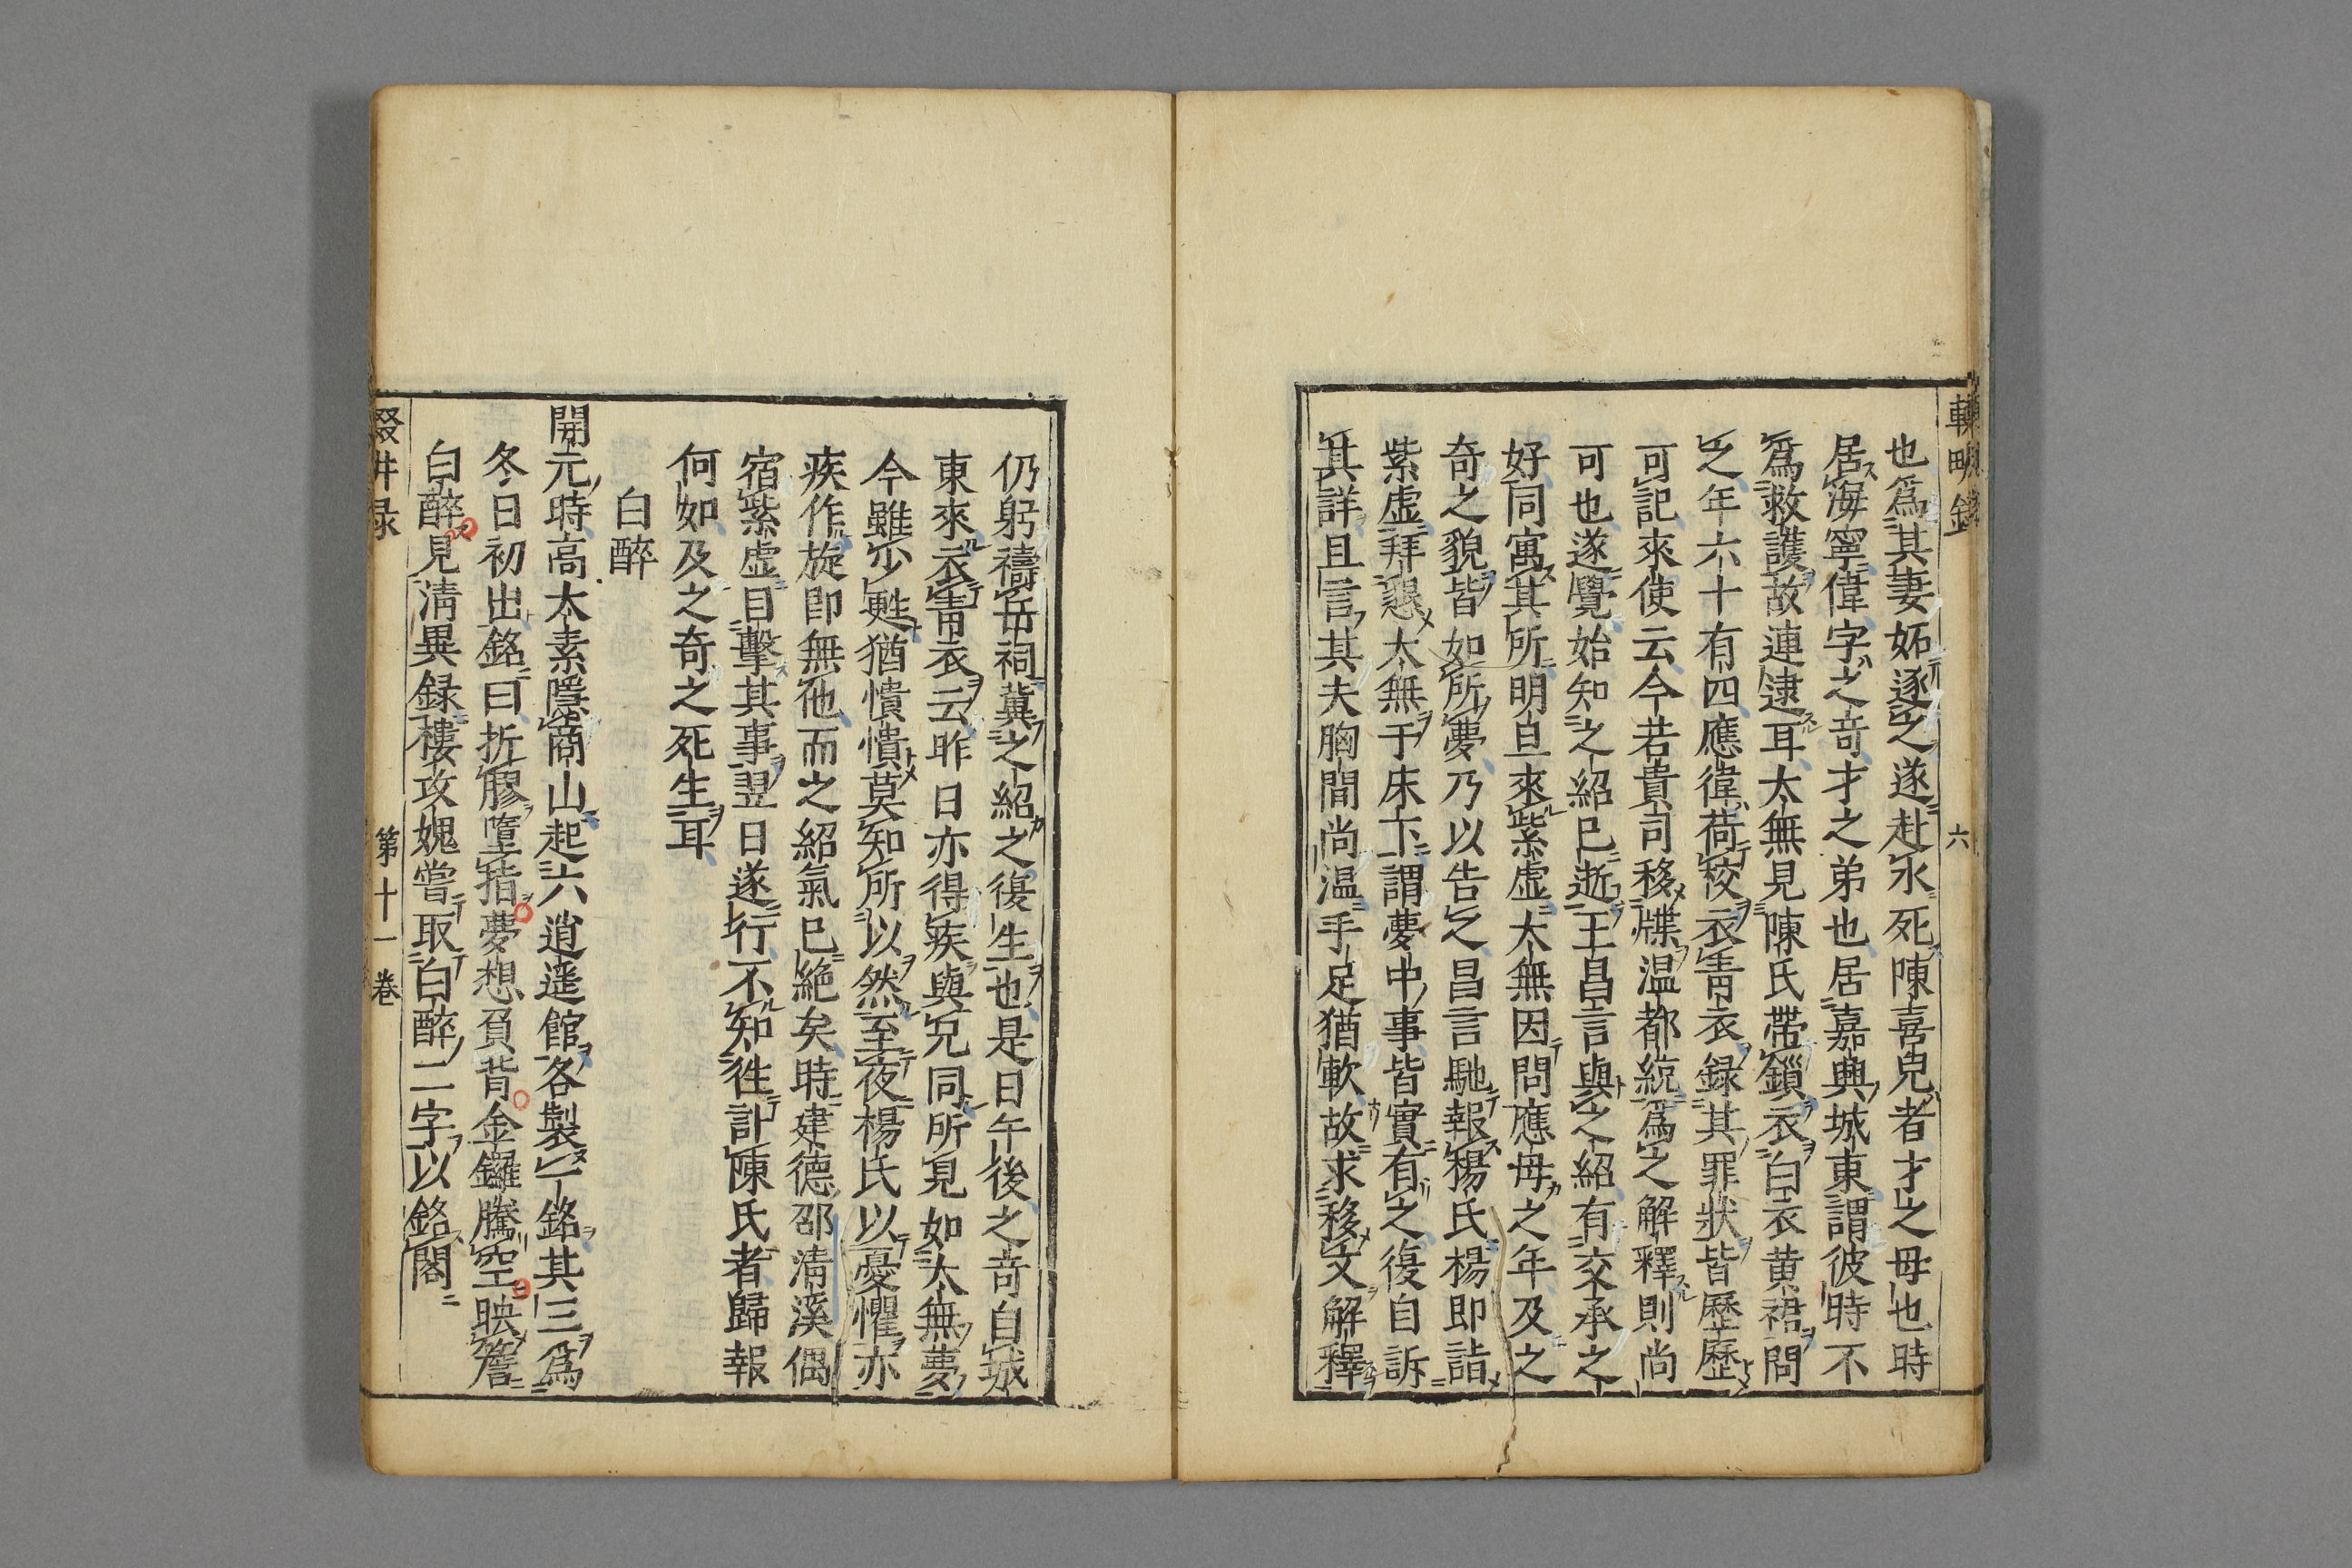 也爲其妻妬逐之遂赴水死陳喜兒者才之母也時
居海寧偉字之奇才之弟也居嘉興城東謂彼時不
爲救護故連逮耳太無見陳氏帶鎖衣白衣黄裙問
之年六十有四應徫荷校衣青衣録其罪狀皆歷歷
可記來使云今若貴司移牒温都統爲之解釋則尚
可也遂覺始知之紹已逝王昌言與之紹有交承之
好同寓其所明旦來紫虛太無因問應母之年及之
奇之貌皆如所夢乃以告之昌言馳報楊氏楊即詣
紫虛拜懇太無于床下謂夢中事皆實有之復自訴
其詳且言其夫胸間尚温手足猶軟故求移文解釋
仍躬禱岳祠冀之紹之復生也是日午後之奇自城
東來衣青衣云昨日亦得疾與兄同所見如太無夢
今雖少甦猶憒憒莫知所以然至夜楊氏以憂懼亦
疾作旋即無他而之紹氣已絶矣時建德邵清溪偶
宿紫虛目擊其事翌日遂行不知徃訃陳氏者歸報
何如及之奇之死生耳
白醉
開元時高太素隱商山起六逍遥館各製一銘其三爲
冬日初出銘曰折膠墮指夢想負背金鑼騰空映簷
白醉見清異録樓攻媿嘗取白醉二字以銘閣
六
第十一巻